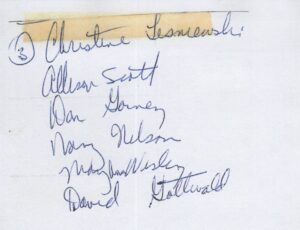 ③ Christine Lesniewski
Allison Scott
Dan Gorney
Nancy Nelson
Mary Ann Wesley
David Gottwald